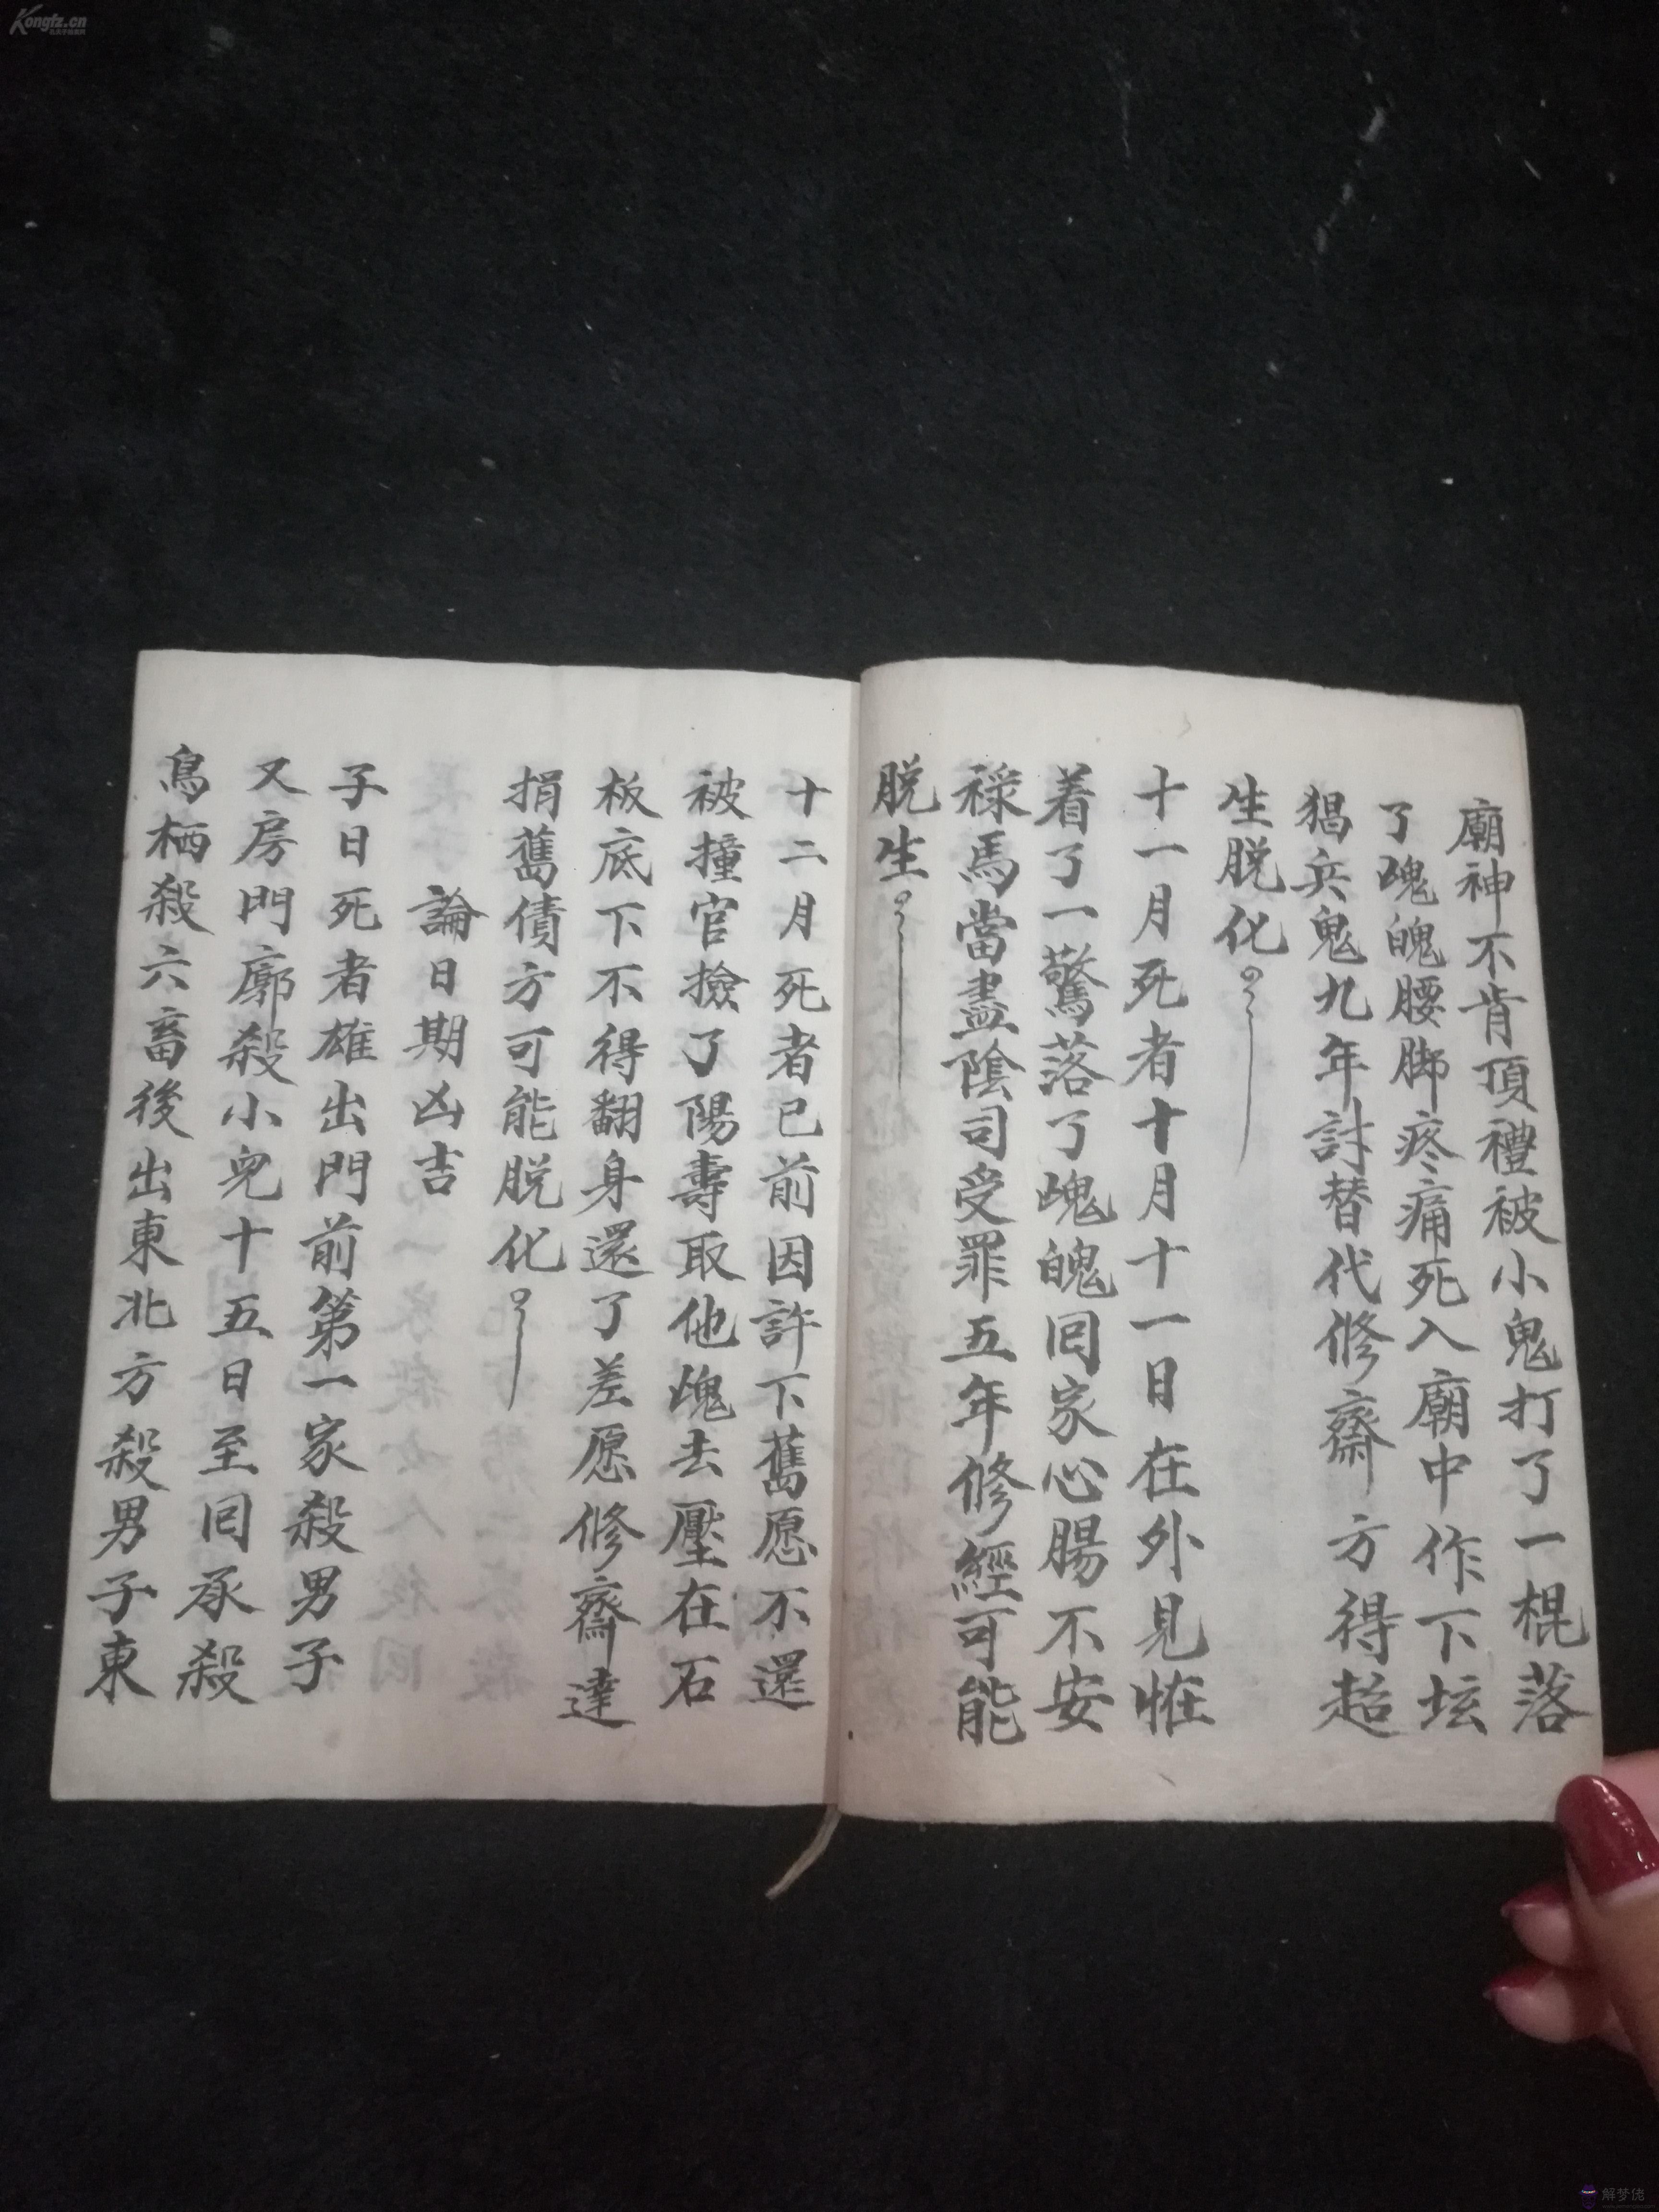 廟神不肯頂禮被小鬼打了一棍落
了魂魄腰脚疼痛死入廟中作下坛
猖兵鬼九年討替代修齋方得超
生脱化
十一月死者十月十一日在外見恠
着了一驚落了魂魄囘家心腸不安
禄馬當盡陰司受罪五年修經可能
脱生
十二月死者已前因許下舊愿不還
被撞官撿了陽壽取他魂去壓在石
板底下不得翻身還了差愿修齋達
捐舊債方可能脱化
論日期凶吉
子日死者雄出門前第一家殺男子
又房門廓殺小兒十五日至囘承殺
鳥栖殺六畜後出東北方殺男子東
Kongfz.cn
解梦佬